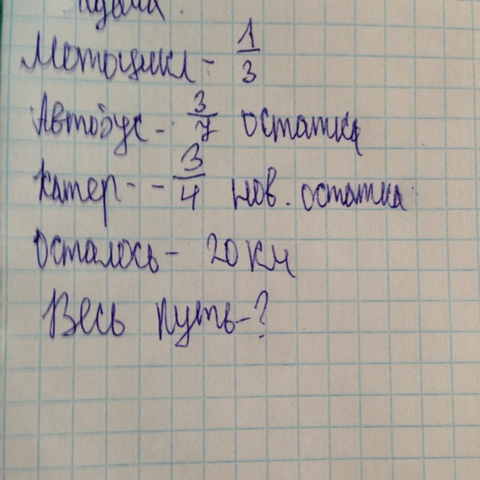 Мотоцикл - 1/3
Автобус - 3/7 остатка
Катер - - 3/4 нов. остатка
Осталось - 20 км
Весь путь - ?